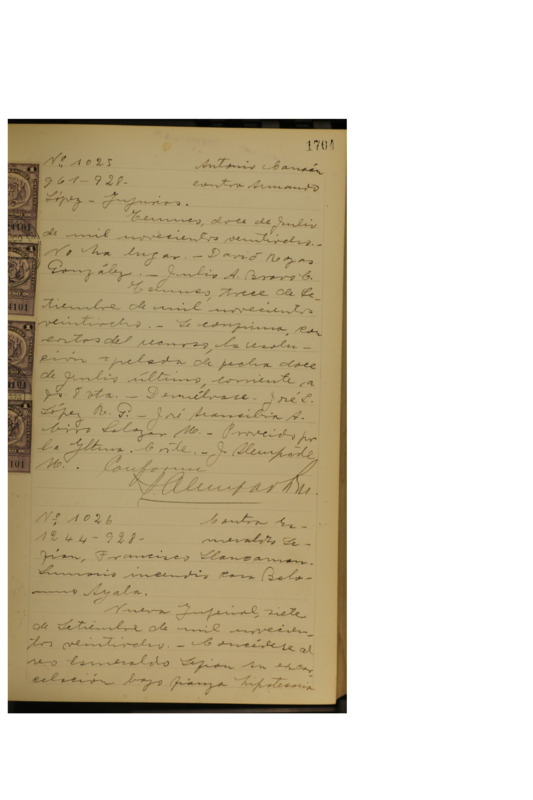 1704
Nº 1025 Antonio
961-928- contra Armando
López - Injurias.
Temuco, doce de Julio
de mil novecientos veintiocho.-
No ha lugar. - David Rozas
González. - Julio A. Bravo C.
Temuco, trece de Se-
tiembre de mil novecientos
veintiocho. - Se confirma, con
costas del recurso, la resolu-
ción apelada de fecha doce
de Julio último, corriente a
fs 8 vta. - Devuélvase. José L.
López R. P. - José Arancibia A.
Salazar M. - Proveido por
la Iltma. Corte. - J.
M. Conforme
Nº 1026 Contra Es-
1244-928- meraldo Se-
Francisco
Sumario incendio casa
Ayala.
Nueva Imperial, siete
de Setiembre de mil novecien-
tos veintiocho. - Concédese al
reo Esmeraldo su excar-
celación bajo fianza hipotecaria
4101
4101
4101